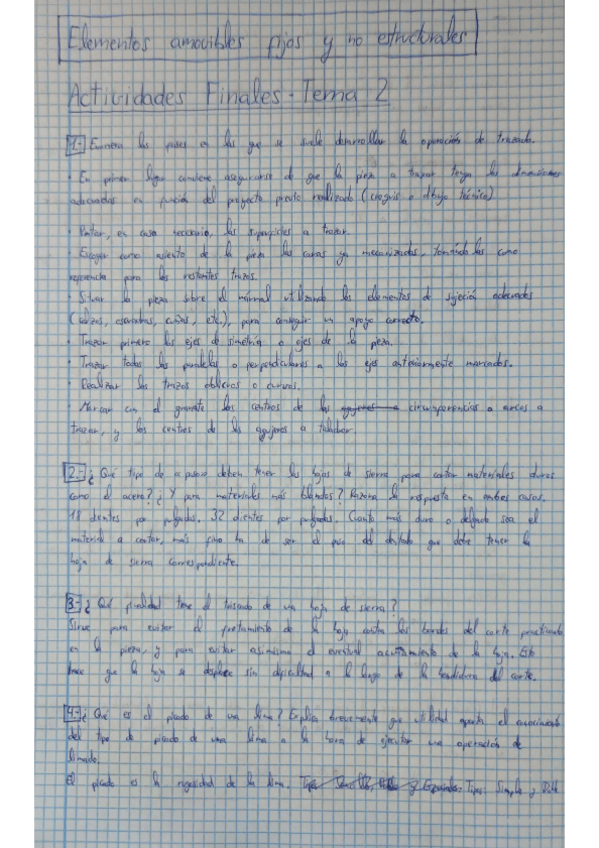 Elementos amovibles fijos y no estructurales
Actividades Finales - Tema 2
1.- Enumera las fases en las que se suele desarrollar la operación de trazado.
· En primer lugar conviene asegurarse de que la pieza a trazar tenga las dimensiones
adecuadas en función del proyecto previo realizado (croquis o dibujo técnico)
· Pintar, en caso necesario, las superficies a trazar.
· Escoger como asiento de la pieza las caras ya mecanizadas, tomándolas como
referencia para los restantes trazos.
· Situar la pieza sobre el mármol utilizando los elementos de sujeción adecuados
(calzos, escuadras, cuñas, etc.), para conseguir un apoyo correcto.
· Trazar primero los ejes de simetría o ejes de la pieza.
· Trazar todas las paralelas o perpendiculares a los ejes anteriormente marcados.
· Realizar los trazos oblicuos o curvos.
· Marcar con el granete los centros de las agujeros circunferencias o arcos a
trazar, y los centros de los agujeros a taladrar.
2.- ¿Qué tipo de paso deben tener las hojas de sierra para cortar materiales duros
como el acero? ¿Y para materiales más blandos? Razona la respuesta en ambos casos.
18 dientes por pulgada. 32 dientes por pulgada. Cuanto más duro o delgado sea el
material a cortar, más fino ha de ser el paso del dentado que debe tener la
hoja de sierra correspondiente.
3.- ¿Qué finalidad tiene el trascado de una hoja de sierra?
Sirve para evitar el frotamiento de la hoja contra los bordes del corte practicado
en la pieza, y para evitar asimismo el eventual acuñamiento de la hoja. Esto
hace que la hoja se desplace sin dificultad a lo largo de la hendidura del corte.
4.- ¿Qué es el picado de una lima? Explica brevemente que utilidad aporta el conocimiento
del tipo de picado de una lima a la hora de ejecutar una operación de
limado.
El picado es la rugosidad de la lima. Tipos: Simple y Doble